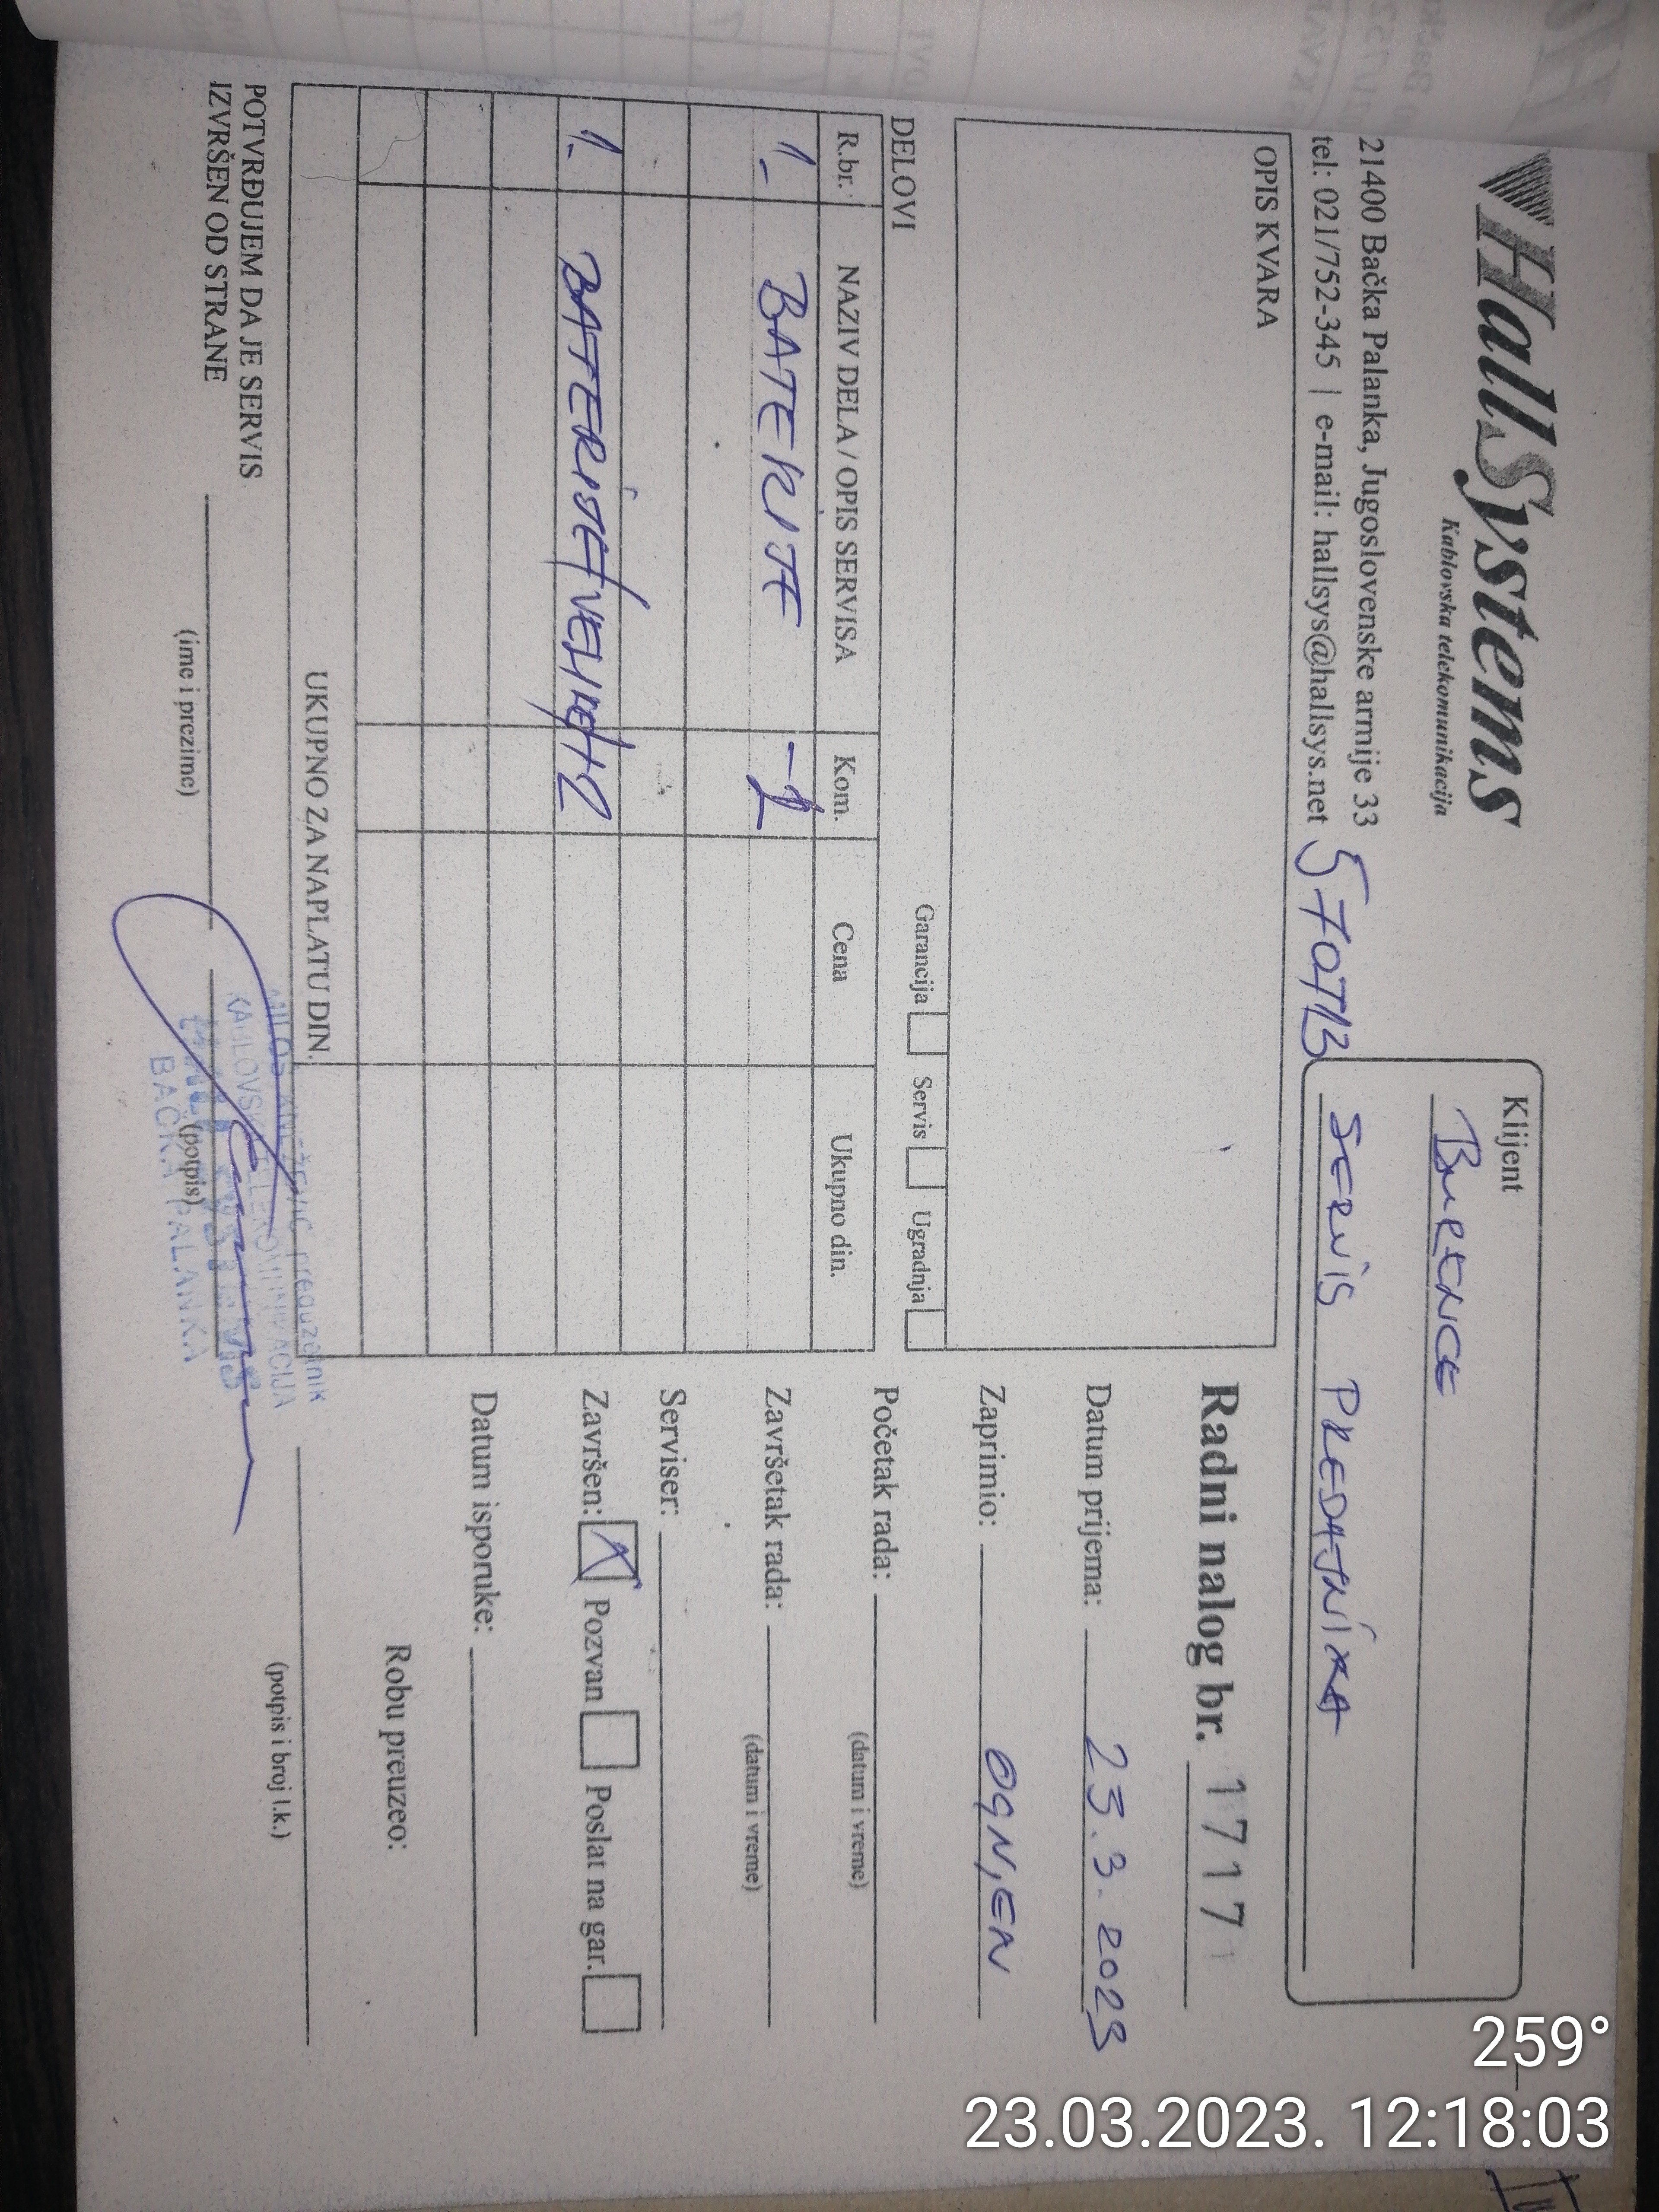 HallSystems
Kablovska telekomunikacija
21400 Bačka Palanka, Jugoslovenske armije 33
tel: 021/752-345 | e-mail: hallsys@hallsys.net
Klijent
SERVIS PREDAJNIKA
OPIS KVARA
Radni nalog br. 1717
Datum prijema: 23.3.2023
Zaprimio: OGNJEN
Početak rada:
(datum i vreme)
Završetak rada:
(datum i vreme)
Serviser:
Završen: X Pozvan Poslat na gar.
Datum isporuke:
Robu preuzeo:
(potpis i broj l.k.)
DELOVI Garancija Servis Ugradnja
R.br. NAZIV DELA / OPIS SERVISA Kom. Cena Ukupno din.
1. BATERIJE -1
1. BATERIJE
UKUPNO ZA NAPLATU DIN.
POTVRĐUJEM DA JE SERVIS
IZVRŠEN OD STRANE
(ime i prezime) (potpis)
BAČKA PALANKA
259°
23.03.2023. 12:18:03